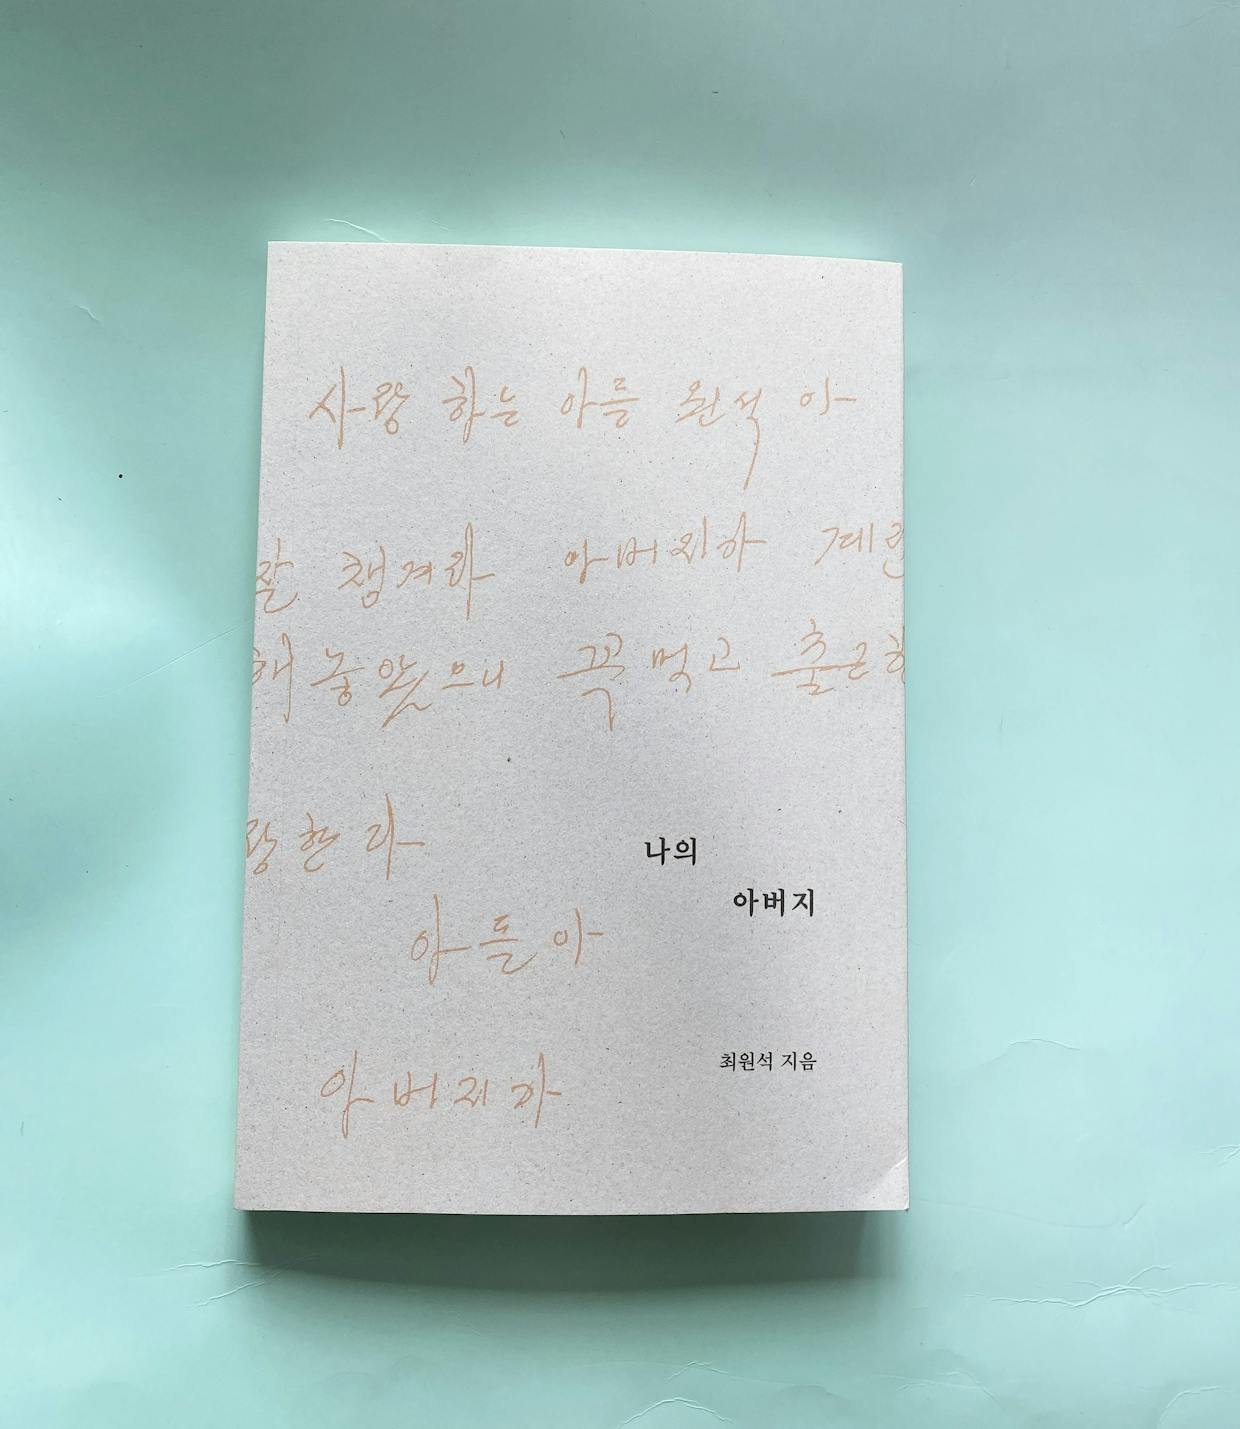 사랑 하는 아들 원석 아
잘 챙겨라 아버지가 계란
해 놓았으니 꼭 먹고 출근하
랑한다
나의
아버지
아들아
아버지가
최원석 지음